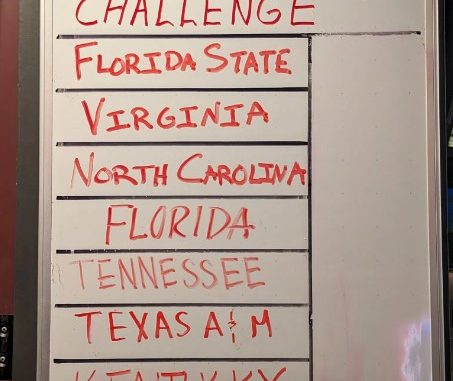 CHALLENGE
FLORIDA STATE
VIRGINIA
NORTH CAROLINA
FLORIDA
TENNESSEE
TEXAS A & M
KENTUCKY